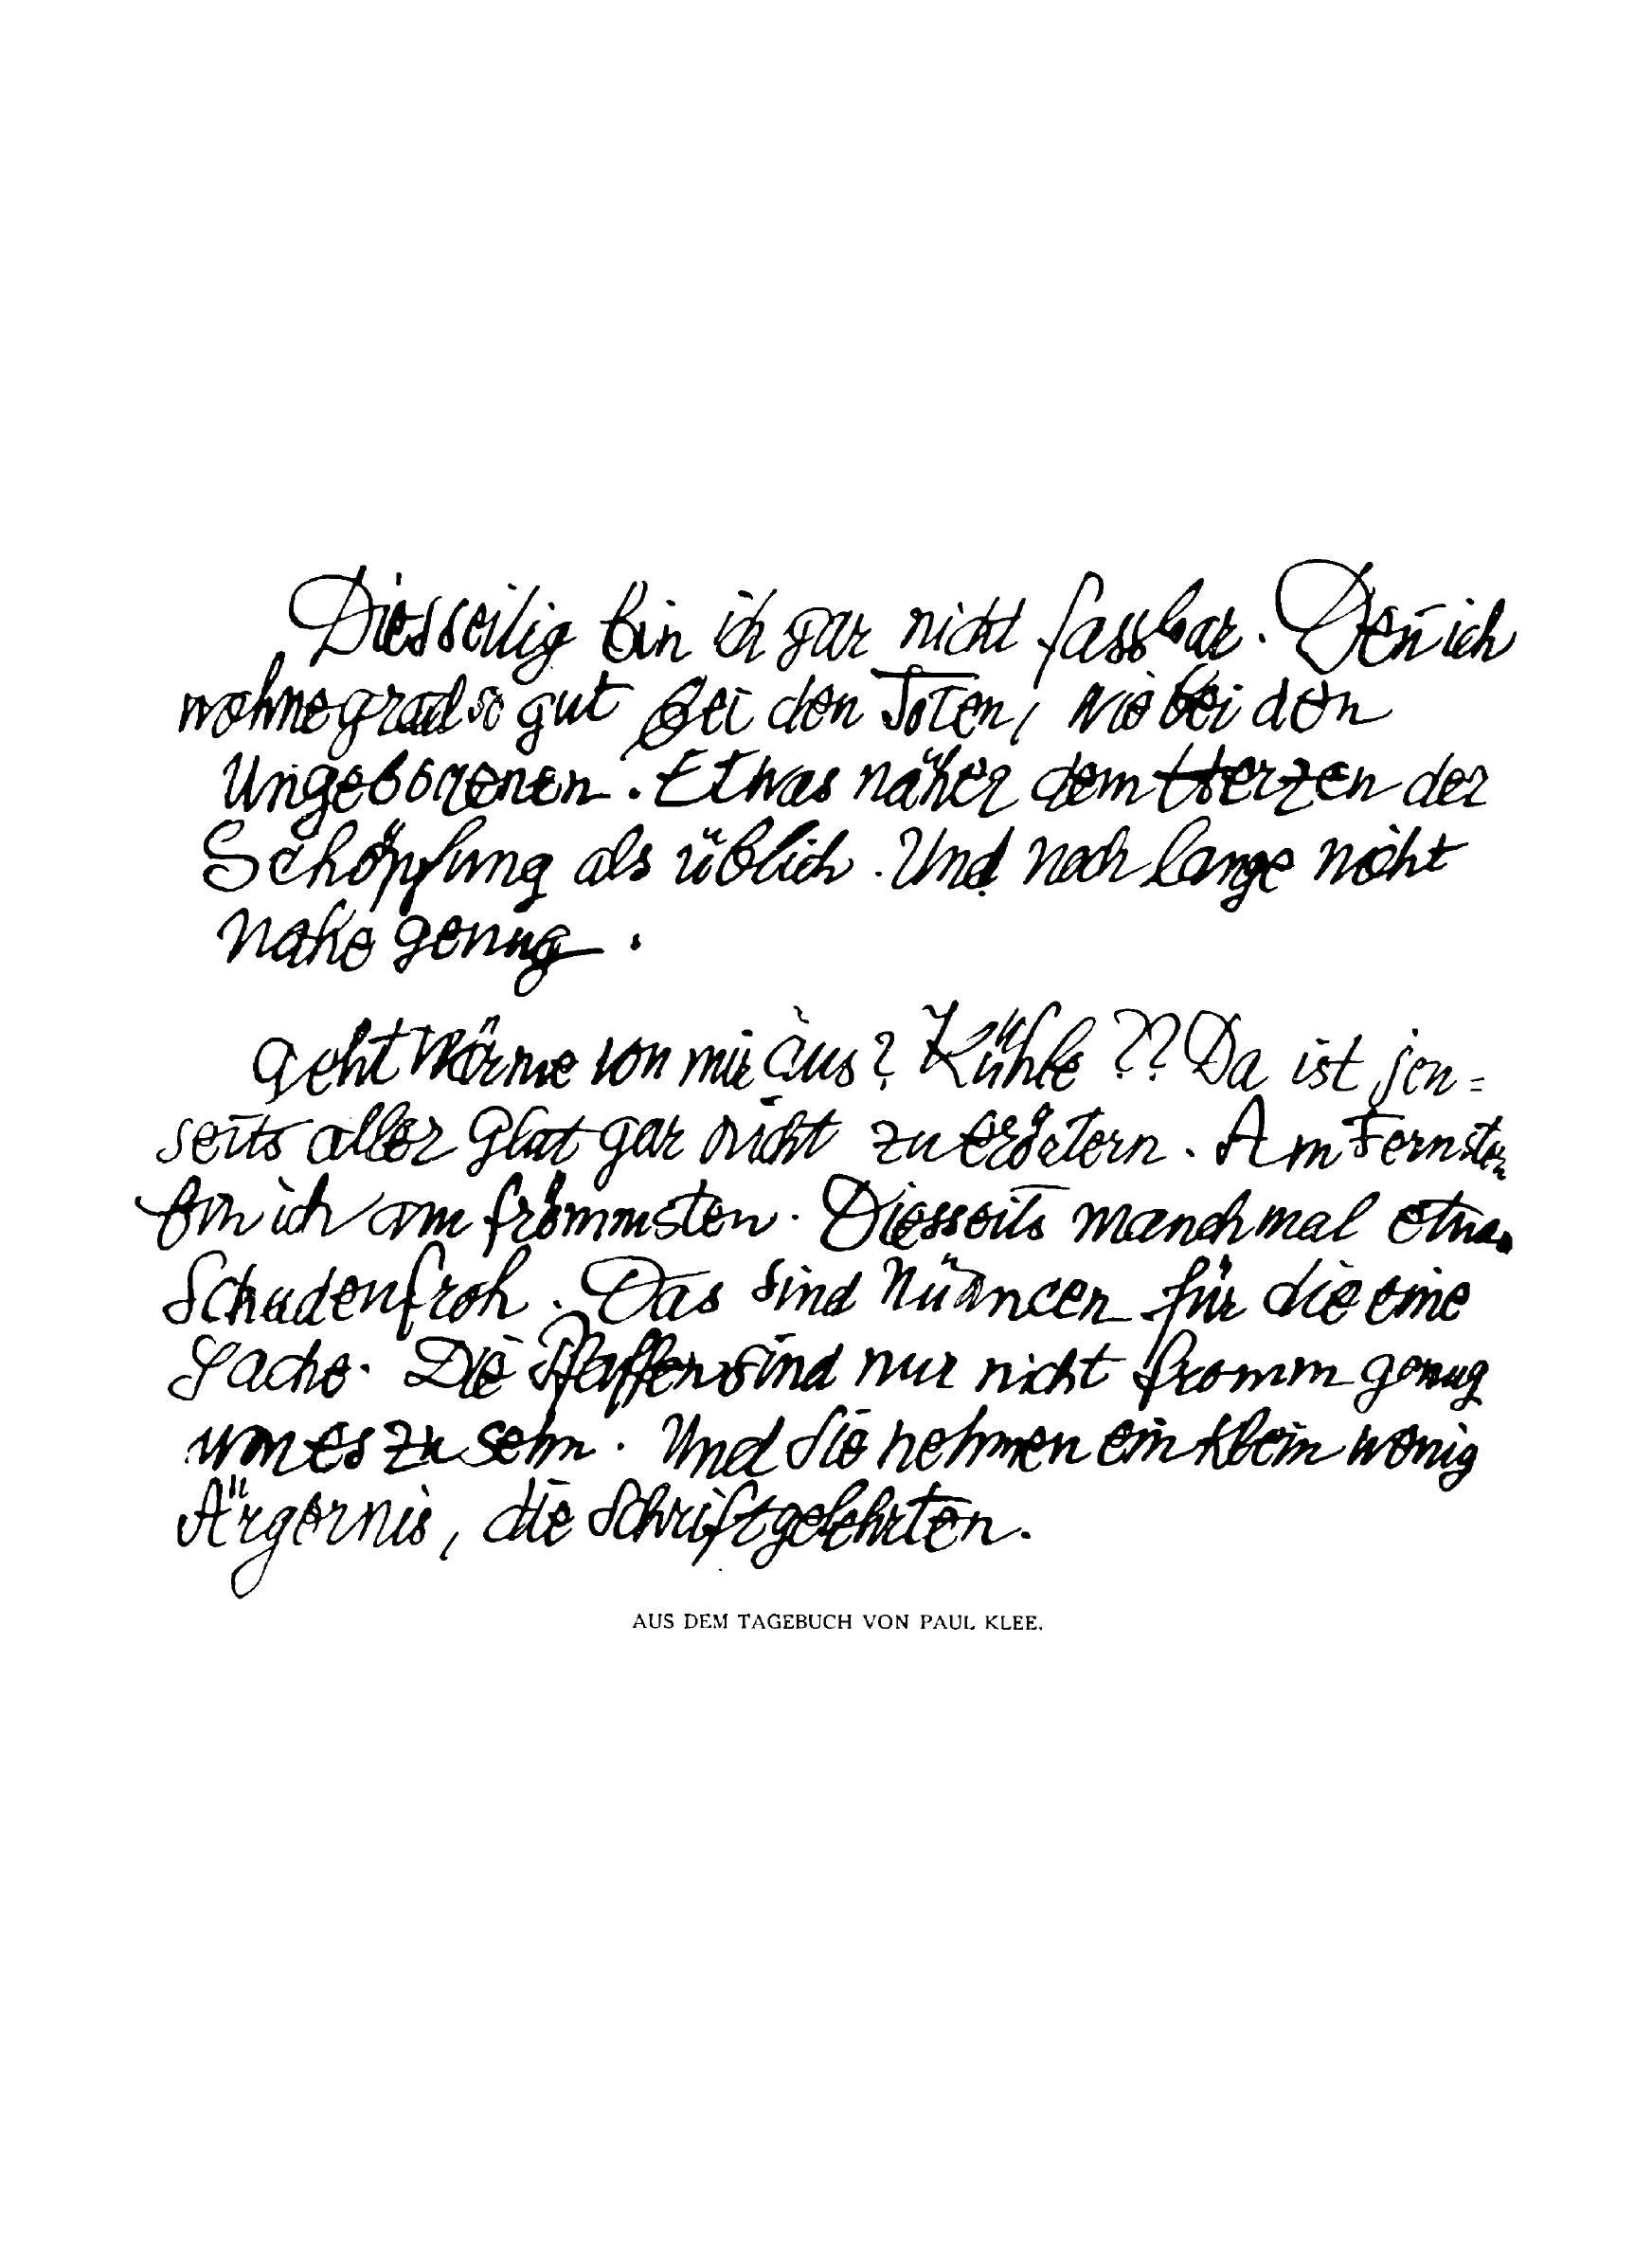 Diesseitig bin ich gar nicht fassbar. Deñ ich
wohne grad so gut bei den Toten, wie bei den
Ungeborenen. Etwas näher dem Herzen der
Schöpfung als üblich. Und noch lange nicht
nahe genug.
Geht Wärme von mir aus? Kühle?? Da ist jen=
seits aller Glut gar nicht zu erörtern. Am Fernsten
bin ich am frömmsten. Diesseits manchmal etwas
Schadenfroh. Das sind Nüancen für die eine
Sache. Die Pfaffen sind nur nicht fromm genug
um es zu sehn. Und sie nehmen ein klein wenig
Ärgernis, die Schriftgelehrten.
AUS DEM TAGEBUCH VON PAUL KLEE.